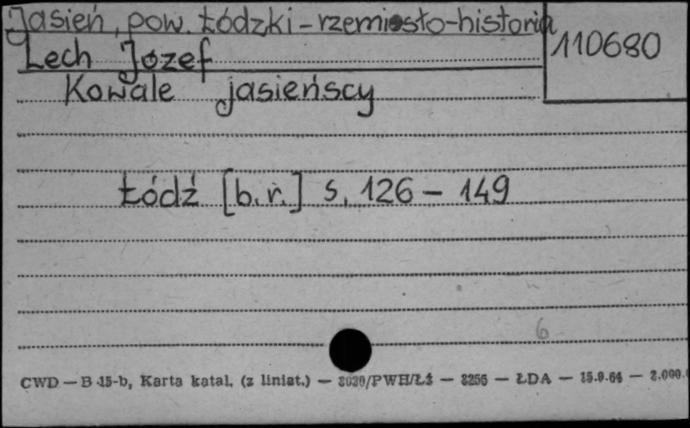 Jasień, pow. Łódzki - rzemiosło - historia
110680
Lech Józef
Kowale jasieńscy
Łódź [b.r.] s. 126 - 149
6
CWD — B-15-b, Karta katal. (z liniat.) — /PWH/Łż — 3256 — ŁDA — 15.9.64 — 2.000.